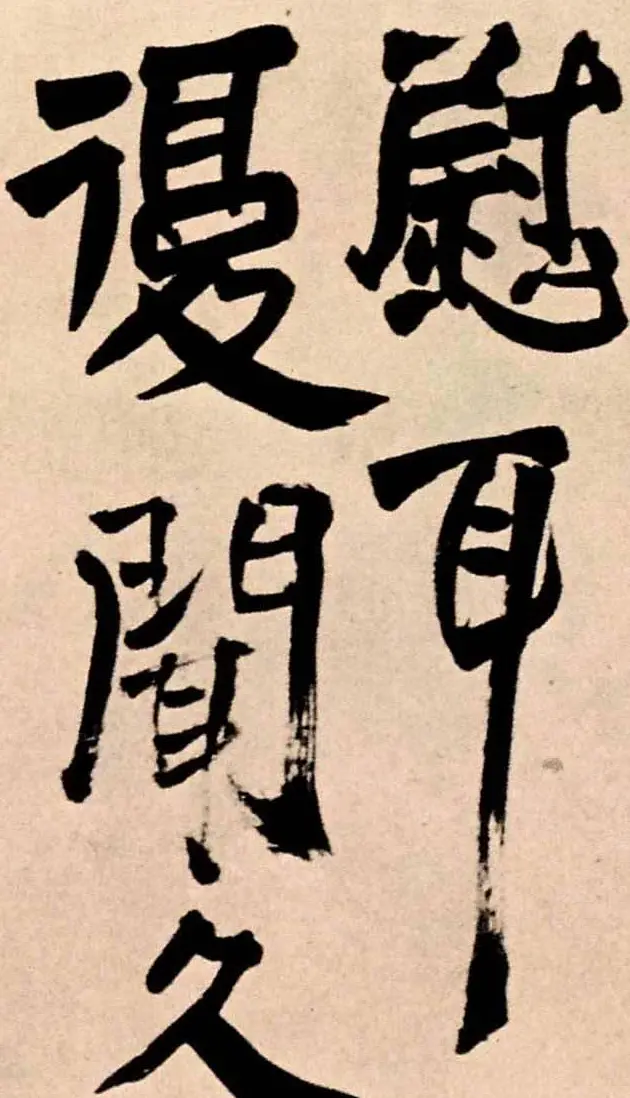 慰耳
復聞久